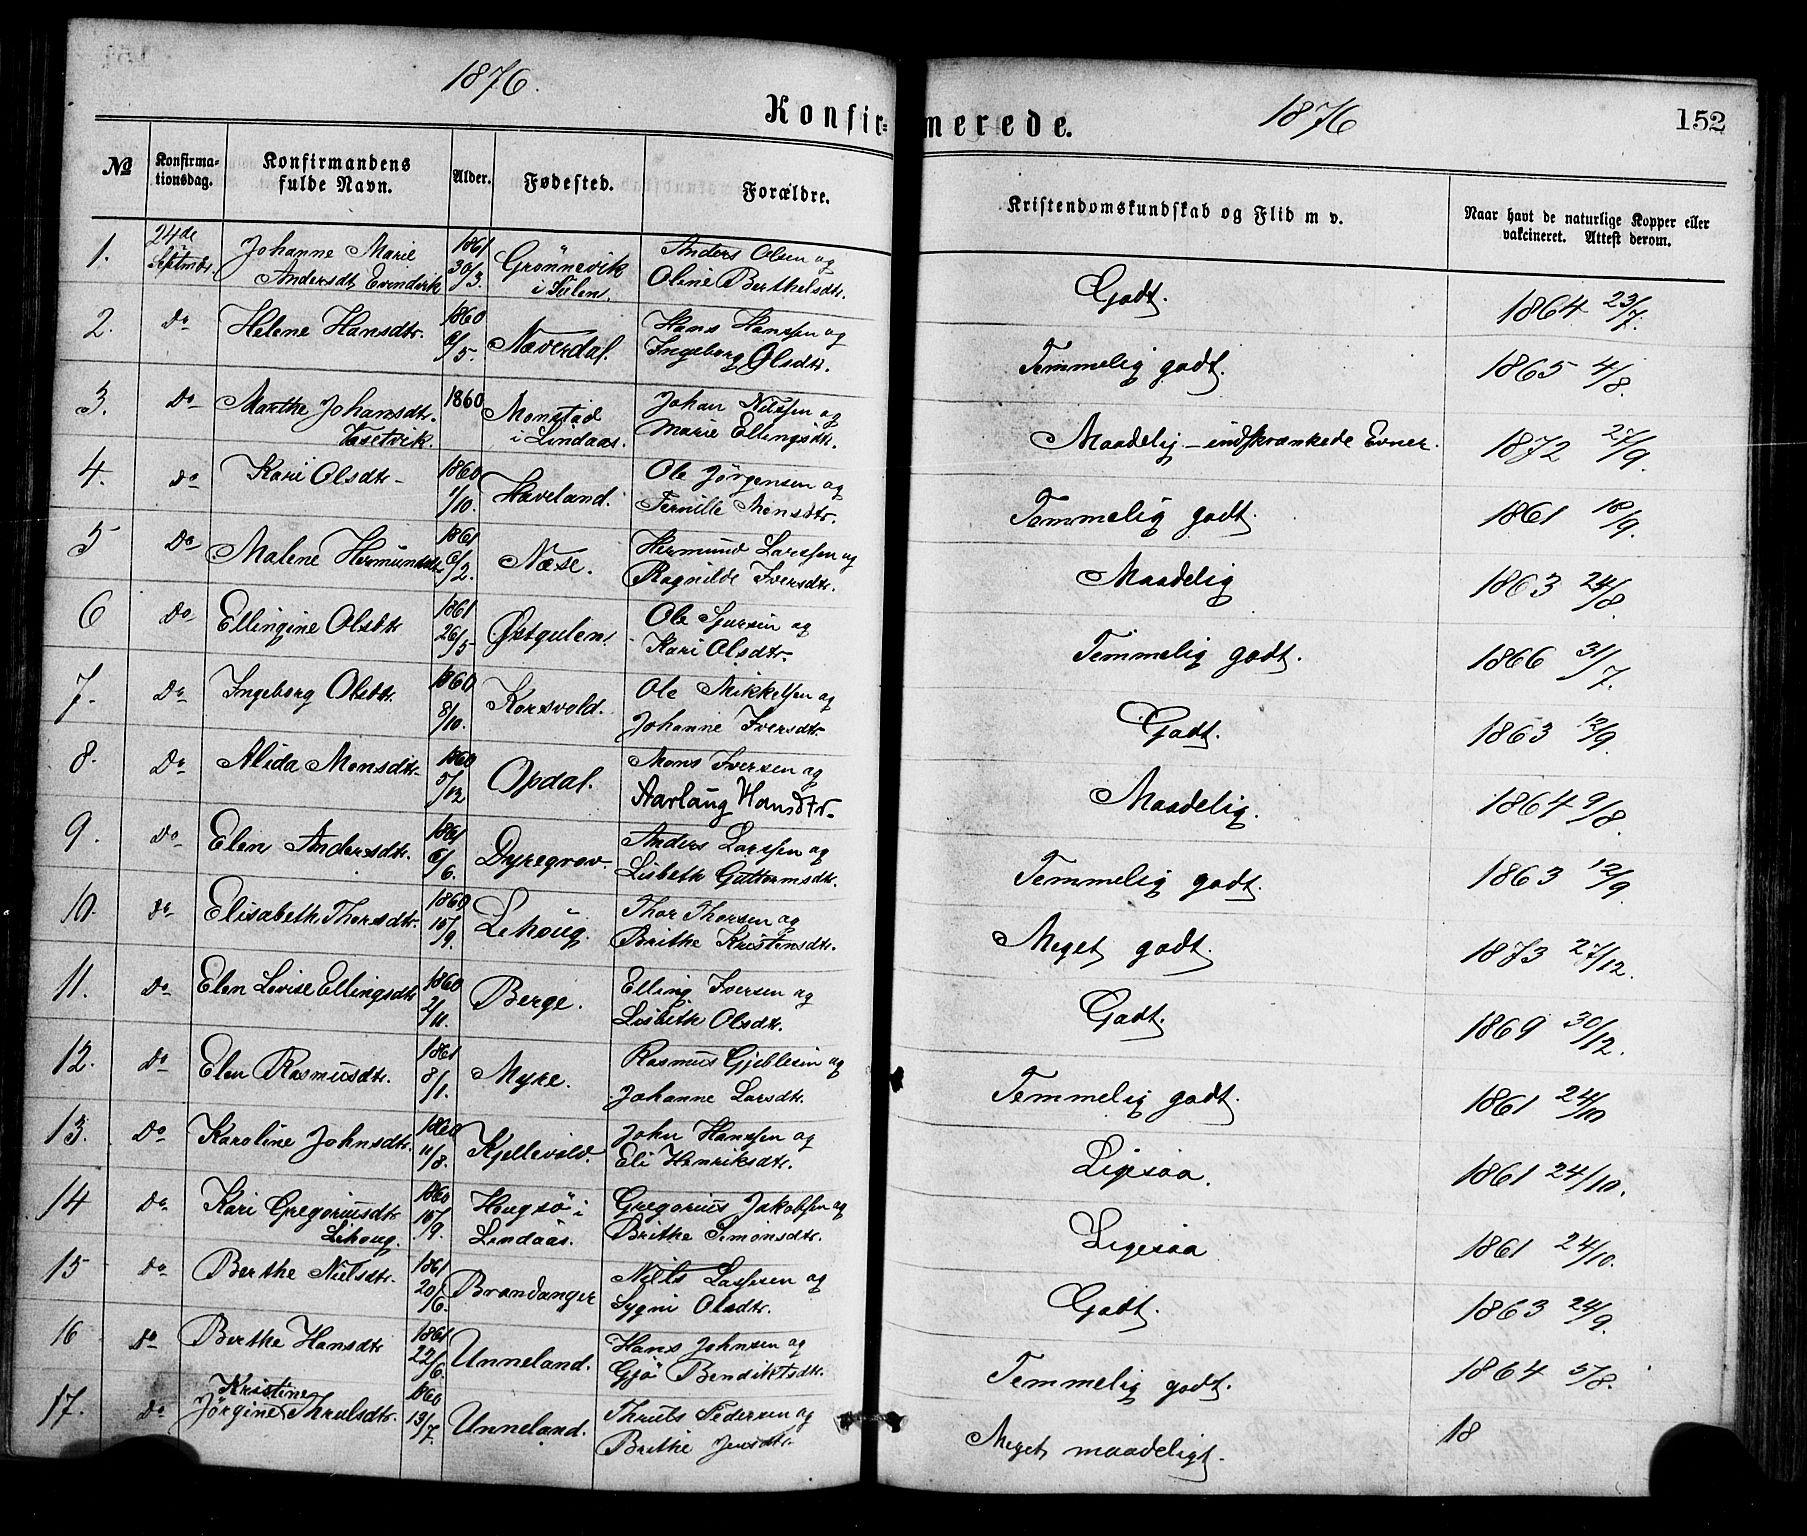 1876.
Konfir= merede.
1876
152
No
Konfirma-
tionsdag.
Konfirmandens
fulde Navn.
Alder.
Fødested.
Forældre.
Kristendomskundskab og Flid m v.
Naar havt de naturlige Kopper eller
vakcineret. Attest derom.
1. 24de Johanne Marie 1861 Grønnevik Anders Olsen og
Septmbr. Andersdt Evindvik 30/3. i Sulen. Oline Berthelsdtr. Godt. 1864 23/7.
2. Do Helene Hansdtr. 1860 Næverdal. Hans Hanssen og
6/5. Ingeborg Olsdtr. Temmelig godt. 1865 4/8.
3. Do Marthe Johansdtr. 1860 Monstad Johan Nilssen og
i Lindaas. Marie Ellingsdtr. Maadelig - indskrænkede Evner. 1872 27/9.
4. Do Kari Olsdtr 1860 Haveland. Ole Jørgensen og
1/10. Pernille Monsdtr. Temmelig godt. 1861 18/9.
5 Do Malene Hermundsdtr 1861 Næse. Hermund Larssen og
6/2. Ragnilde Iversdtr. Maadelig 1863 24/8.
6 Do Ellingine Olsdtr 1861 Østgulen. Ole Sjursen og
26/5 Kari Olsdtr. Temmelig godt. 1866 31/7.
7. Do Ingeborg Olsdtr. 1860 Korsvold. Ole Mikkelsen og
8/10. Johanne Iversdtr. Godt. 1863 12/9.
8. Do Alida Monsdtr. 1860 Opdal. Mons Iversen og
5/12 Aarlaug Hansdtr. Maadelig. 1864 9/8.
9. Do Elen Andersdtr. 1861 Dyregrov. Anders Larssen og
6/6. Lisbeth Guttormsdtr. Temmelig godt. 1863 12/9.
10. Do Elisabeth Thorsdtr. 1860 Lihoug. Thor Thorsen og
15/9. Brithe Kristensdtr. Meget godt. 1873 27/12.
11. Do Elen Lovise Ellingsdtr 1860 Berge. Elling Iversen og
2/11. Lisbeth Olsdtr. Godt. 1869 30/12.
12. Do Elen Rasmusdtr. 1861 Myre. Rasmus Gjeblesen og
8/1. Johanne Larsdtr. Temmelig godt. 1861 24/10
13. Do Karoline Johnsdtr. 1860 Kjellevold. John Hanssen og
11/8. Eli Henriksdtr. Ligesaa. 1861 24/10.
14 Do Kari Gregoriusdtr 1860 Hugsø i Gregorius Jakobsen og
Lihoug. 15/9. Lindaas. Brithe Simonsdtr. Ligesaa 1861 24/10.
15 Do Berthe Nielsdtr. 1861 Brandanger Niels Lassesen og
20/6. Sygni Olsdtr. Godt. 1863 24/9.
16 Do Berthe Hansdtr 1861 Unneland. Hans Johnsen og
22/6. Gjø Bendiktsdtr. Temmelig godt. 1864 5/8.
17. Do Kristine 1860
Jørgine Thrulsdtr. 13/7. Unneland. Thruls Pedersen og
Brithe Jensdtr. Meget maadeligt. 18